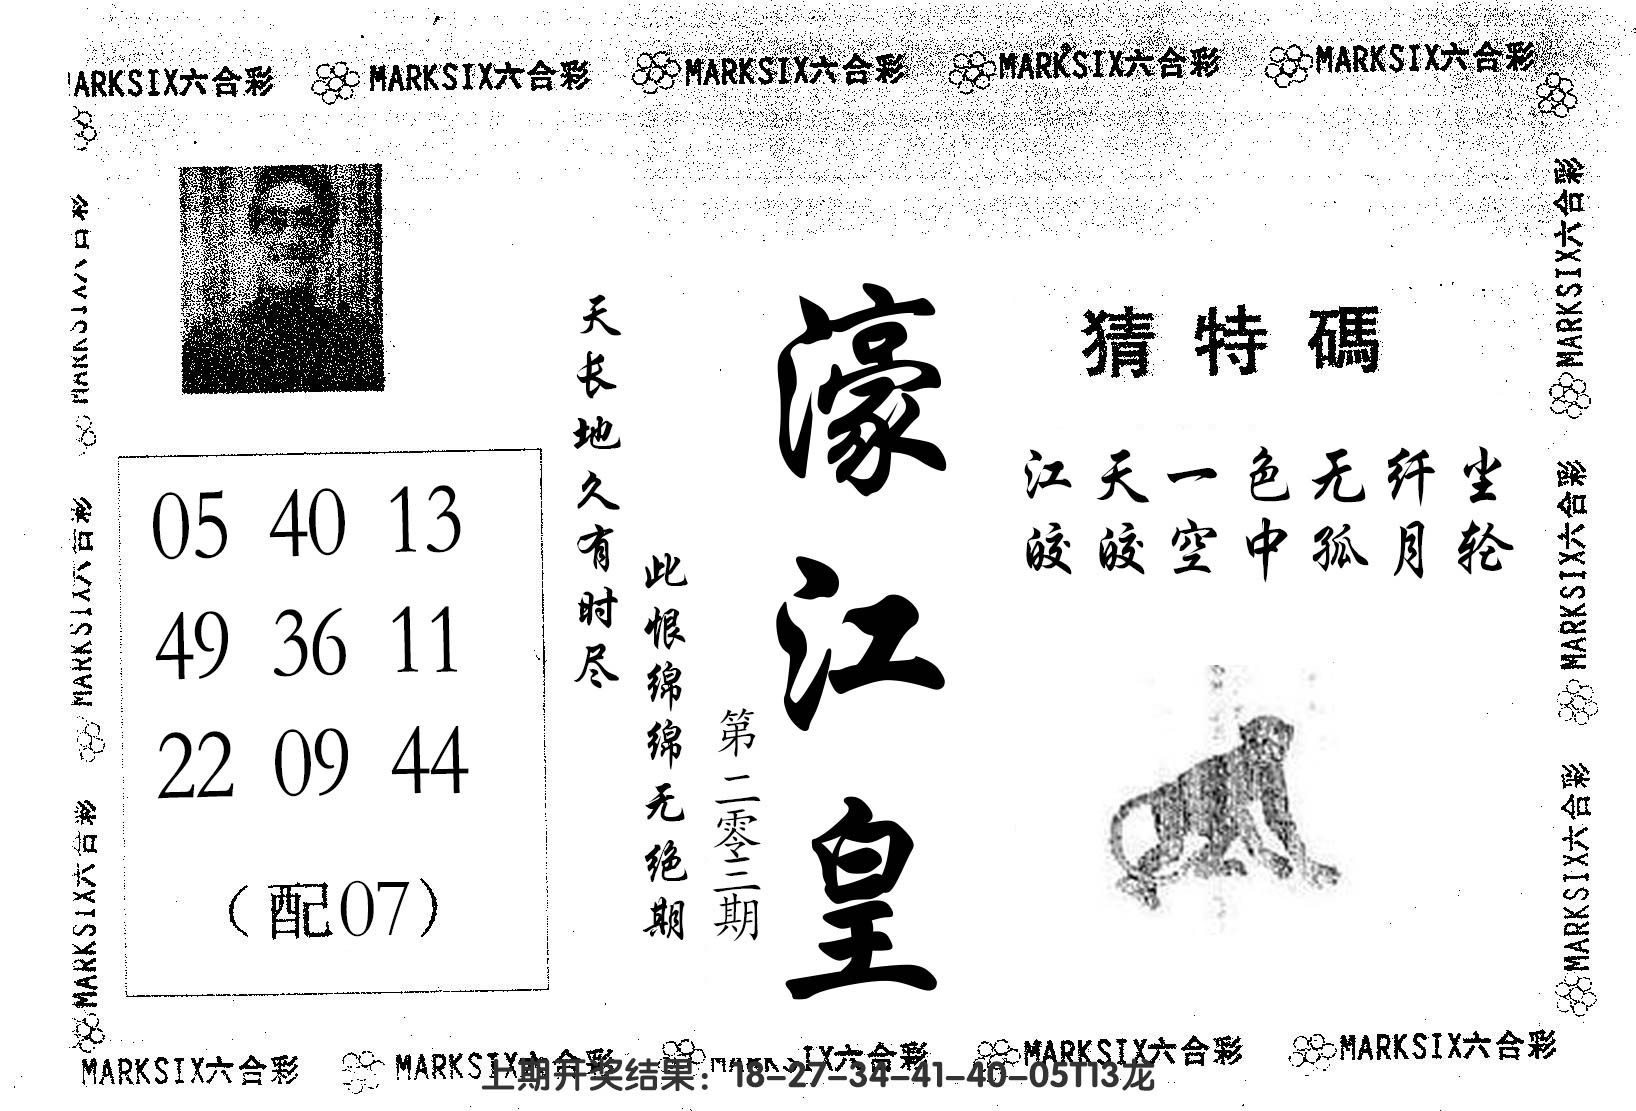 MARKSIX六合彩 MARKSIX六合彩 MARKSIX六合彩 MARKSIX六合彩
MARKSIX六合彩
MARKSIX六合彩
MARKSIX六合彩
MARKSIX六合彩
MARKSIX六合彩
05 40 13
49 36 11
22 09 44
（配07）
天长地久有时尽
此恨绵绵无绝期
第二零三期
濠江皇
猜特碼
江天一色无纤尘
皎皎空中孤月轮
MARKSIX六合彩
MARKSIX六合彩
MARKSIX六合彩
MARKSIX六合彩 MARKSIX六合彩 MARKSIX六合彩 MARKSIX六合彩
上期开奖结果：18-27-34-41-40-05T13龙